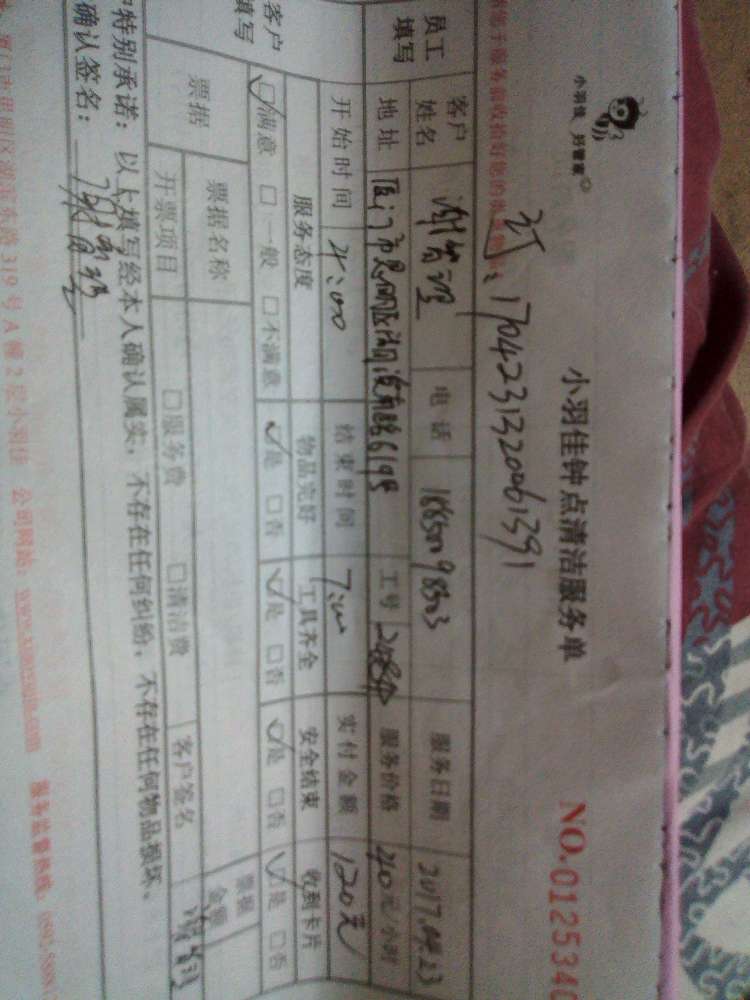 小羽佳 好管家
小羽佳钟点清洁服务单
NO.0125340
订：1704231320061391
员工填写
客户姓名 谢 电话 服务日期 2017.04.23
地址 厦门市思明区湖滨南路619号 工号 服务价格 40元/小时
开始时间 4:00 结束时间 7:00 实付金额 120元
客户填写
服务态度 物品完好 工具齐全 安全结束 收到卡片
☑满意 □一般 □不满意 ☑是 □否 ☑是 □否 ☑是 □否 ☑是 □否
票据 票据名称 票据金额
开票项目 □服务费 □清洁费 客户签名
特别承诺：以上填写经本人确认属实，不存在任何纠纷，不存在任何物品损坏。
确认签名：
湖滨东路319号A幢2层小羽佳 公司网站： 服务监督热线：